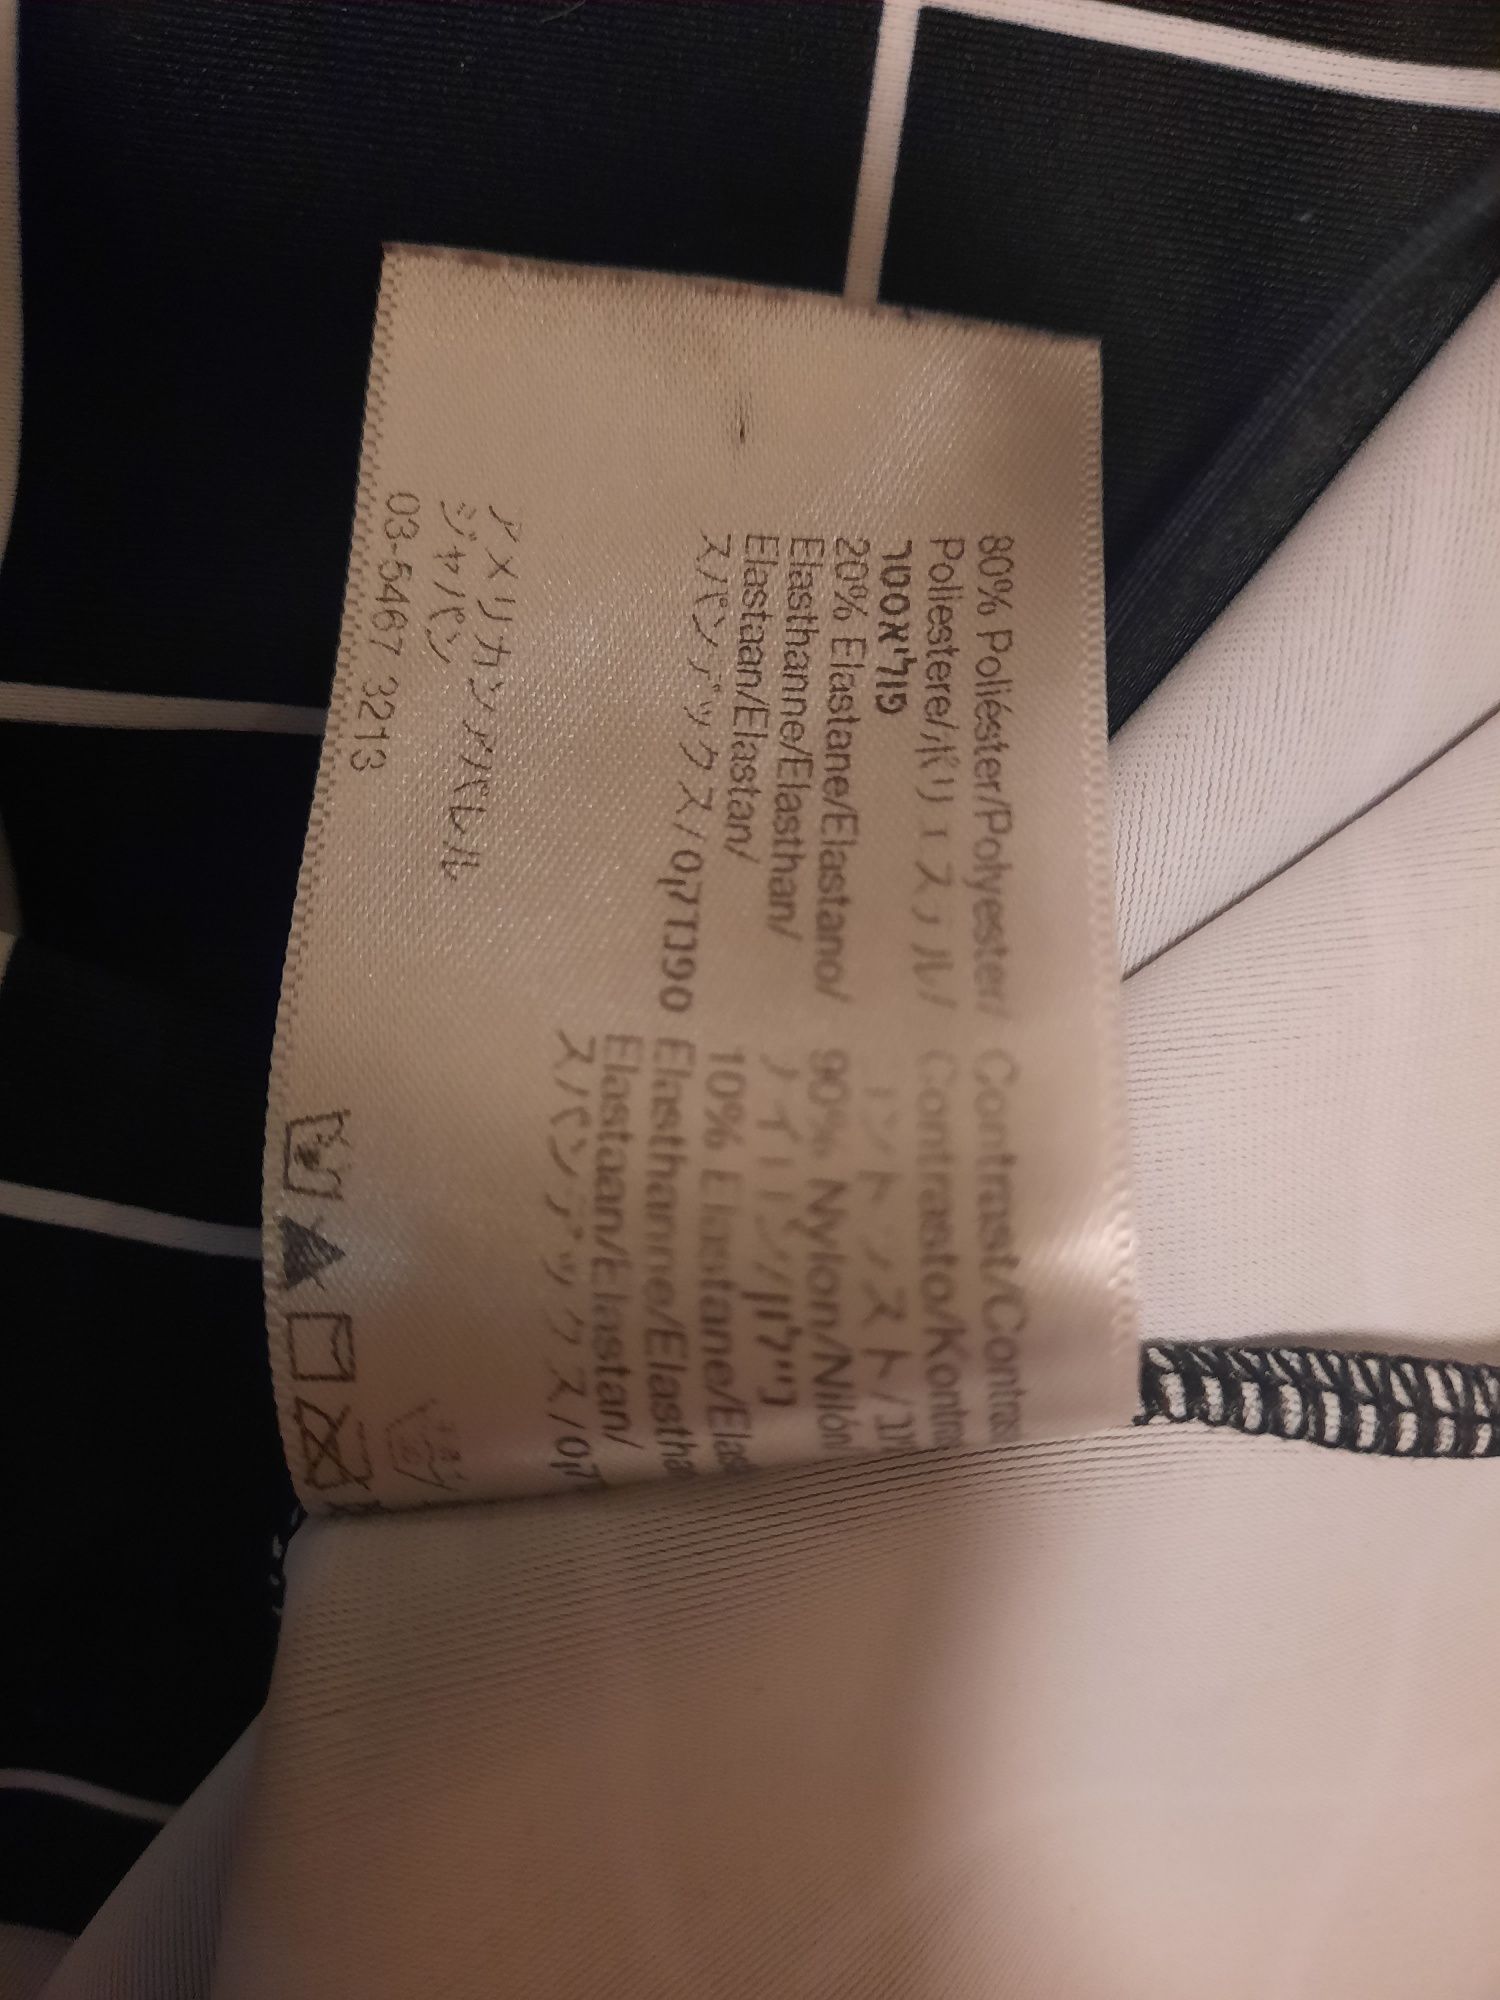 80% Poliéster/Polyester/
Poliestere/ポリエステル/
פוליאסטר
20% Elastane/Elastano/
Elasthanne/Elasthan/
Elastaan/Elastan/
スパンデックス/ספנדקס
アメリカンアパレル
ジャパン
03-5467 3213
Contrast/Contras
Contrasto/Kontra
ントラスト/
90% Nylon/Nilón/
ナイロン/ניילון
10% Elastane/Elas
Elasthanne/Elastha
Elastaan/Elastan/
スパンデックス/